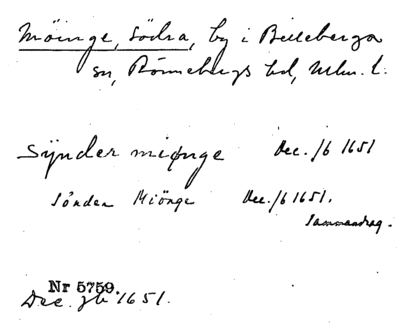 Möinge, Södra, by i Billeberga
sn, Rönnebergs hd, Mlm. l.
Synder miønge Dec. jb 1651
Sönder Miönge Dec. jb 1651.
Sammandrag.
Nr 5759.
Dec. jb 1651.